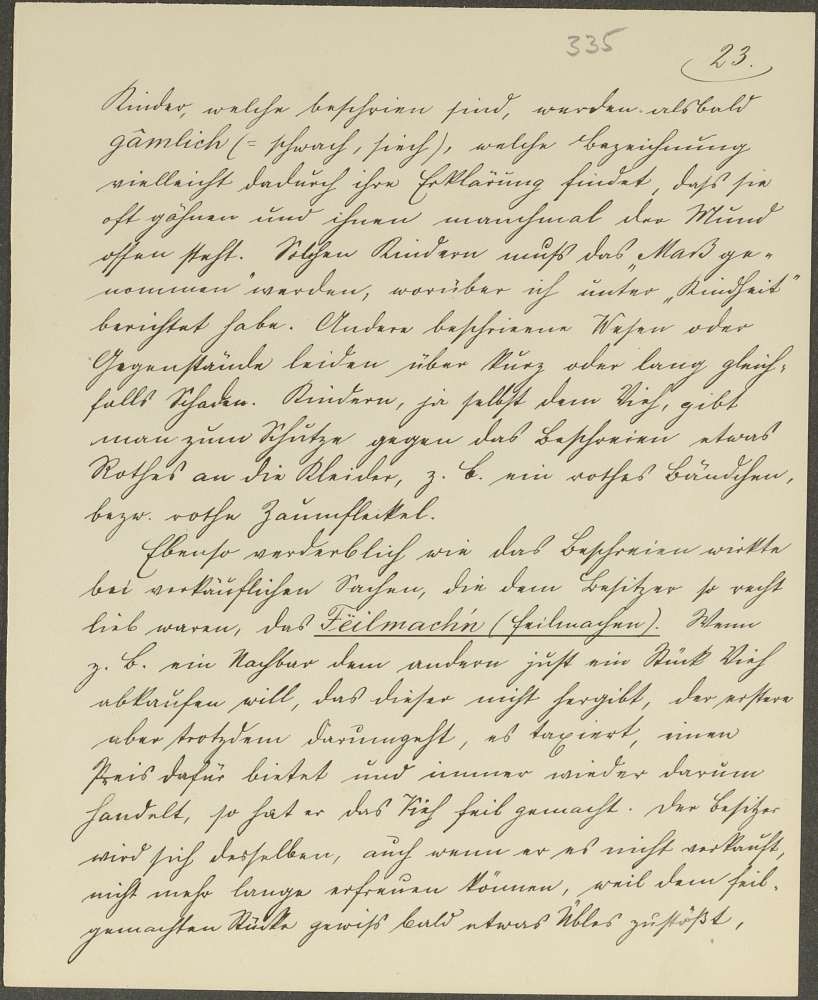 335
23.
Kinder, welche beschrien sind, werden alsbald
gâmlich (= schwach, siech), welche Bezeichnung
vielleicht dadurch ihre Erklärung findet, dass sie
oft gähnen und ihnen manchmal der Mund
offen steht. Solchen Kindern muss das „Maß ge-
nommen“ werden, worüber ich unter „Kindheit“
berichtet habe. Andere beschrieene Wesen oder
Gegenstände leiden über kurz oder lang gleich-
falls Schaden. Kindern, ja selbst dem Vieh, gibt
man zum Schutze gegen das Beschreien etwas
Rothes an die Kleider, z. B. ein rothes Bändchen,
bezw. rothe Zaumfleckel.
Ebenso verderblich wie das Beschreien wirkte
bei verkäuflichen Sachen, die dem Besitzer so recht
lieb waren, das Fëilmach'n (feilmachen). Wenn
z. B. ein Nachbar dem andern just ein Stück Vieh
abkaufen will, das dieser nicht hergibt, der erstere
aber trotzdem darumgeht, es taxiert, einen
Preis dafür bietet und immer wieder darum
handelt, so hat er das Vieh feil gemacht. Der Besitzer
wird sich desselben, auch wenn er es nicht verkauft,
nicht mehr lange erfreuen können, weil dem feil-
gemachten Stücke gewiss bald etwas Übles zustößt,